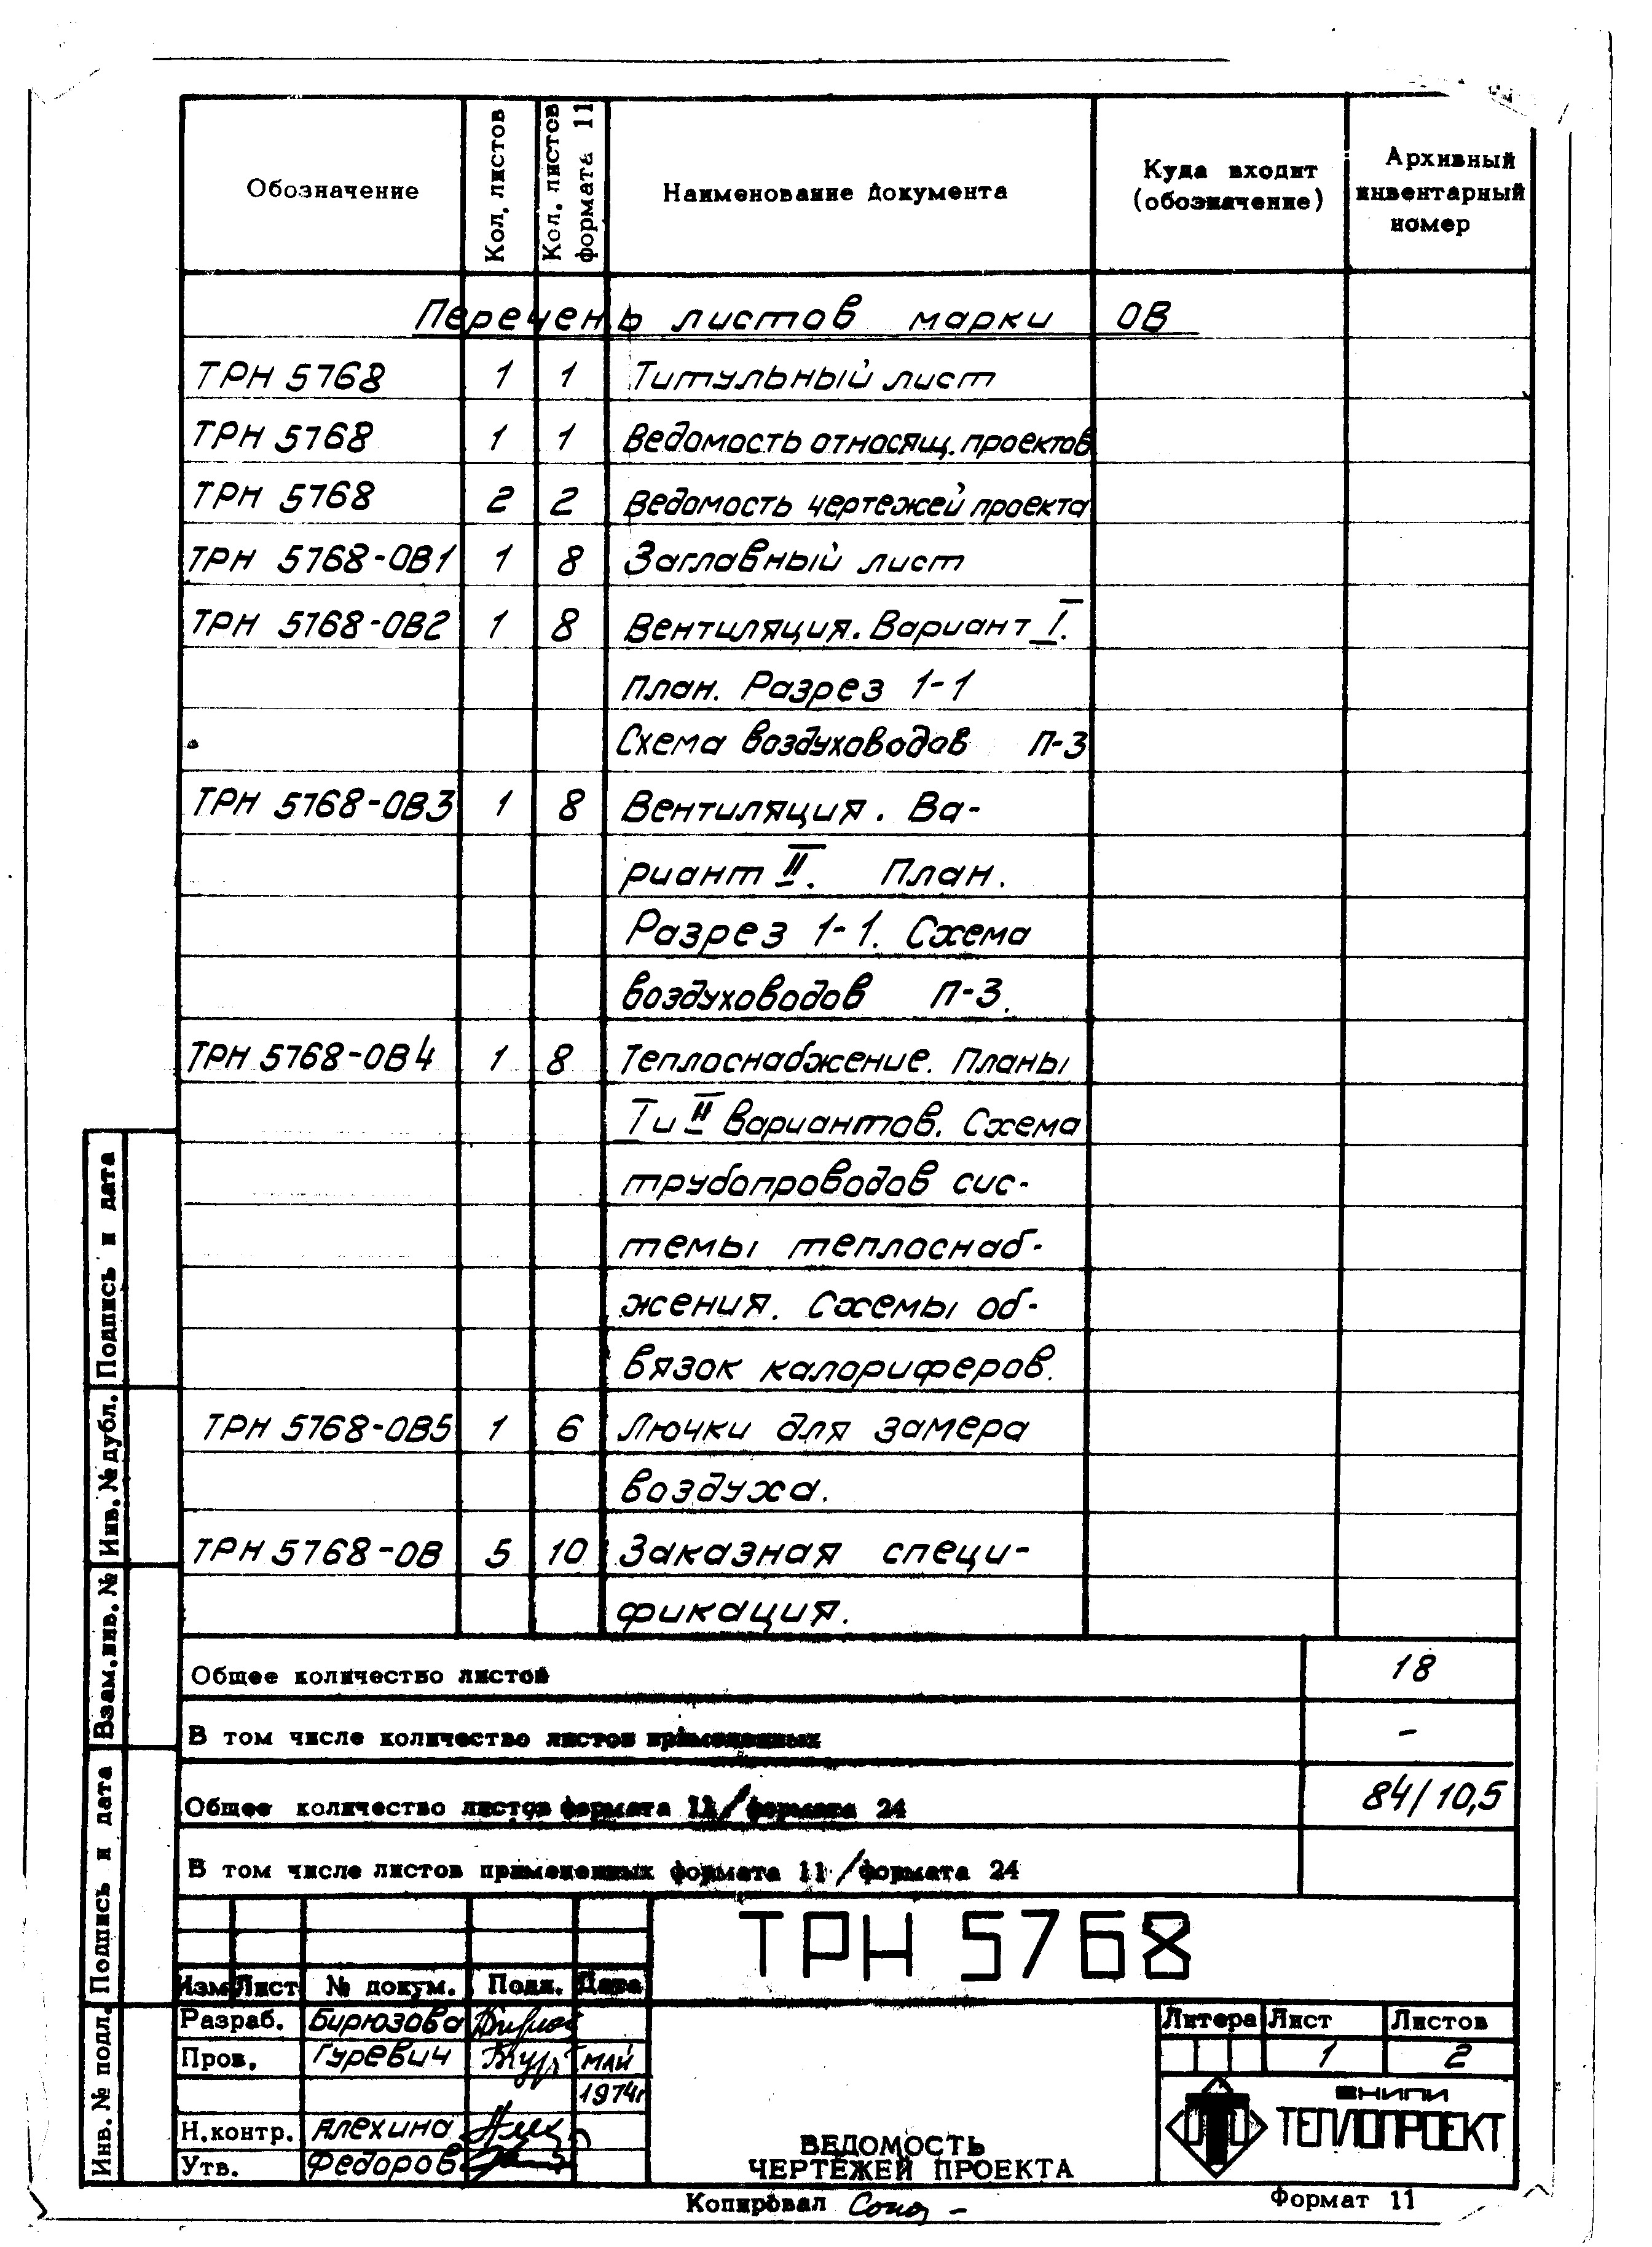 Обозначение Кол. листов Кол. листов формата 11 Наименование документа Куда входит (обозначение) Архивный инвентарный номер
Перечень листов марки ОВ
ТРН 5768 1 1 Титульный лист
ТРН 5768 1 1 Ведомость относящ. проектов
ТРН 5768 2 2 Ведомость чертежей проекта
ТРН 5768-ОВ1 1 8 Заглавный лист
ТРН 5768-ОВ2 1 8 Вентиляция. Вариант I.
План. Разрез 1-1
Схема воздуховодов П-3
ТРН 5768-ОВ3 1 8 Вентиляция. Ва-
риант II. План.
Разрез 1-1. Схема
воздуховодов П-3.
ТРН 5768-ОВ4 1 8 Теплоснабжение. Планы
I и II вариантов. Схема
трубопроводов сис-
темы теплоснаб-
жения. Схемы об-
вязок калориферов.
ТРН 5768-ОВ5 1 6 Лючки для замера
воздуха.
ТРН 5768-ОВ 5 10 Заказная специ-
фикация.
Общее количество листов 18
В том числе количество листов примененных -
Общее количество листов формата 11/формата 24 84/10,5
В том числе листов примененных формата 11/формата 24
Инв. № подл. Подпись и дата Взам. инв. № Инв. № дубл. Подпись и дата
ТРН 5768
Изм Лист № докум. Подп. Дата
Разраб. Бирюзова
Пров. Гуревич май
1974г
Н.контр. Алехина
Утв. Федоров
Литера Лист Листов
1 2
ВНИПИ
ТЕПЛОПРОЕКТ
ВЕДОМОСТЬ
ЧЕРТЕЖЕЙ ПРОЕКТА
Копировал
Формат 11